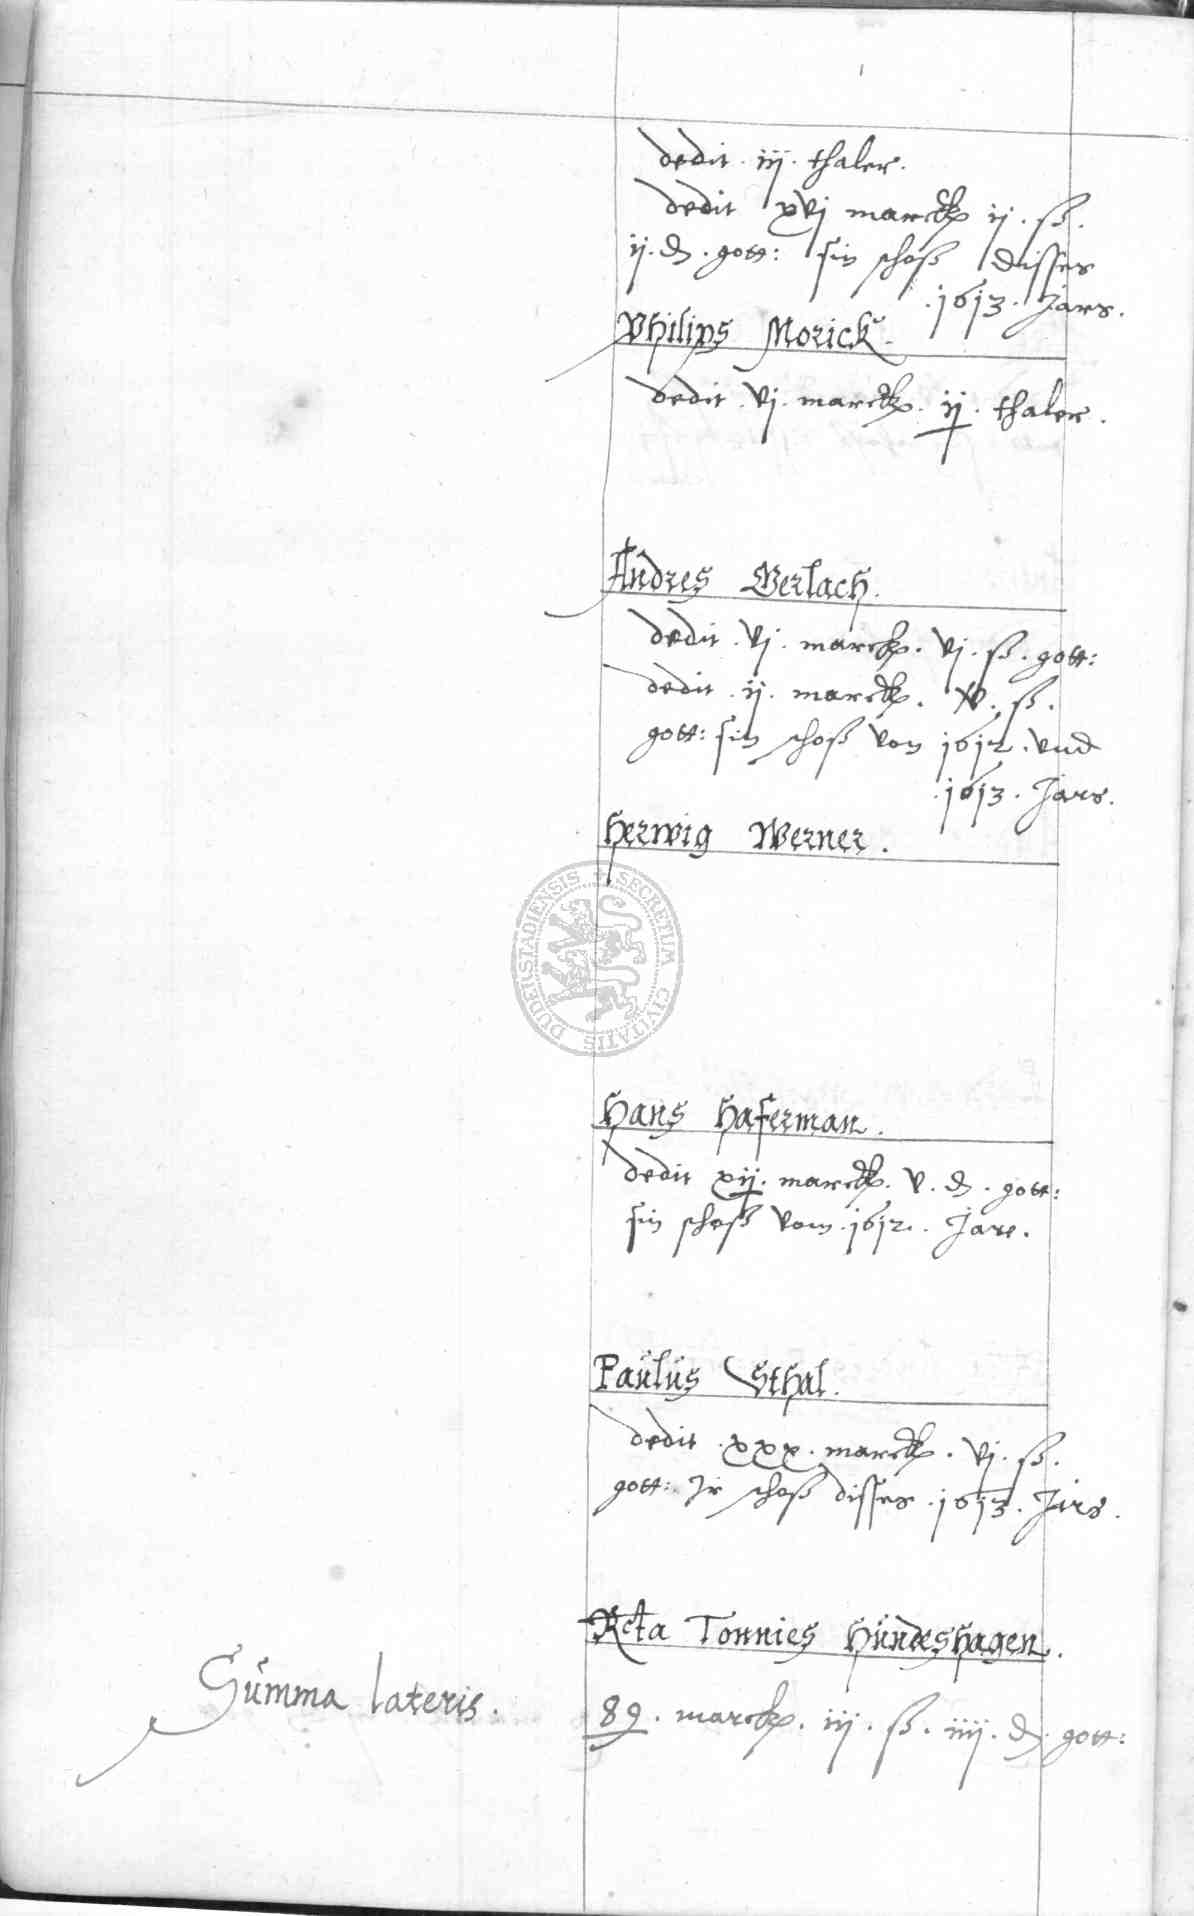 dedit . iij . thaler .
dedit xvj marck ij . ß .
ij . d . gott : sin schoß disses
. 1613 . Jars .
Philips Morick .
dedit . vj . marck . ij . thaler .
Andres Gerlach .
dedit . vj . marck . vj . ß . gott :
dedit . ij . marck . xv . ß .
gott : sin schoß von 1612 . vnd
. 1613 . Jars .
Herwig Werner .
SECRETUM CIVITATIS DUDERSTADIENSIS
Hans Haferman .
dedit xij . marck . v . d . gott :
sin schoß vom . 1612 . Jare .
Paulus Sthal .
dedit . xxx . marck . vj . ß .
gott : Jr schoß disses . 1613 . Jars .
Rcta Tonnies Hundeshagen .
Summa lateris . 89 . marck . iij . ß . iiij . d . gott :